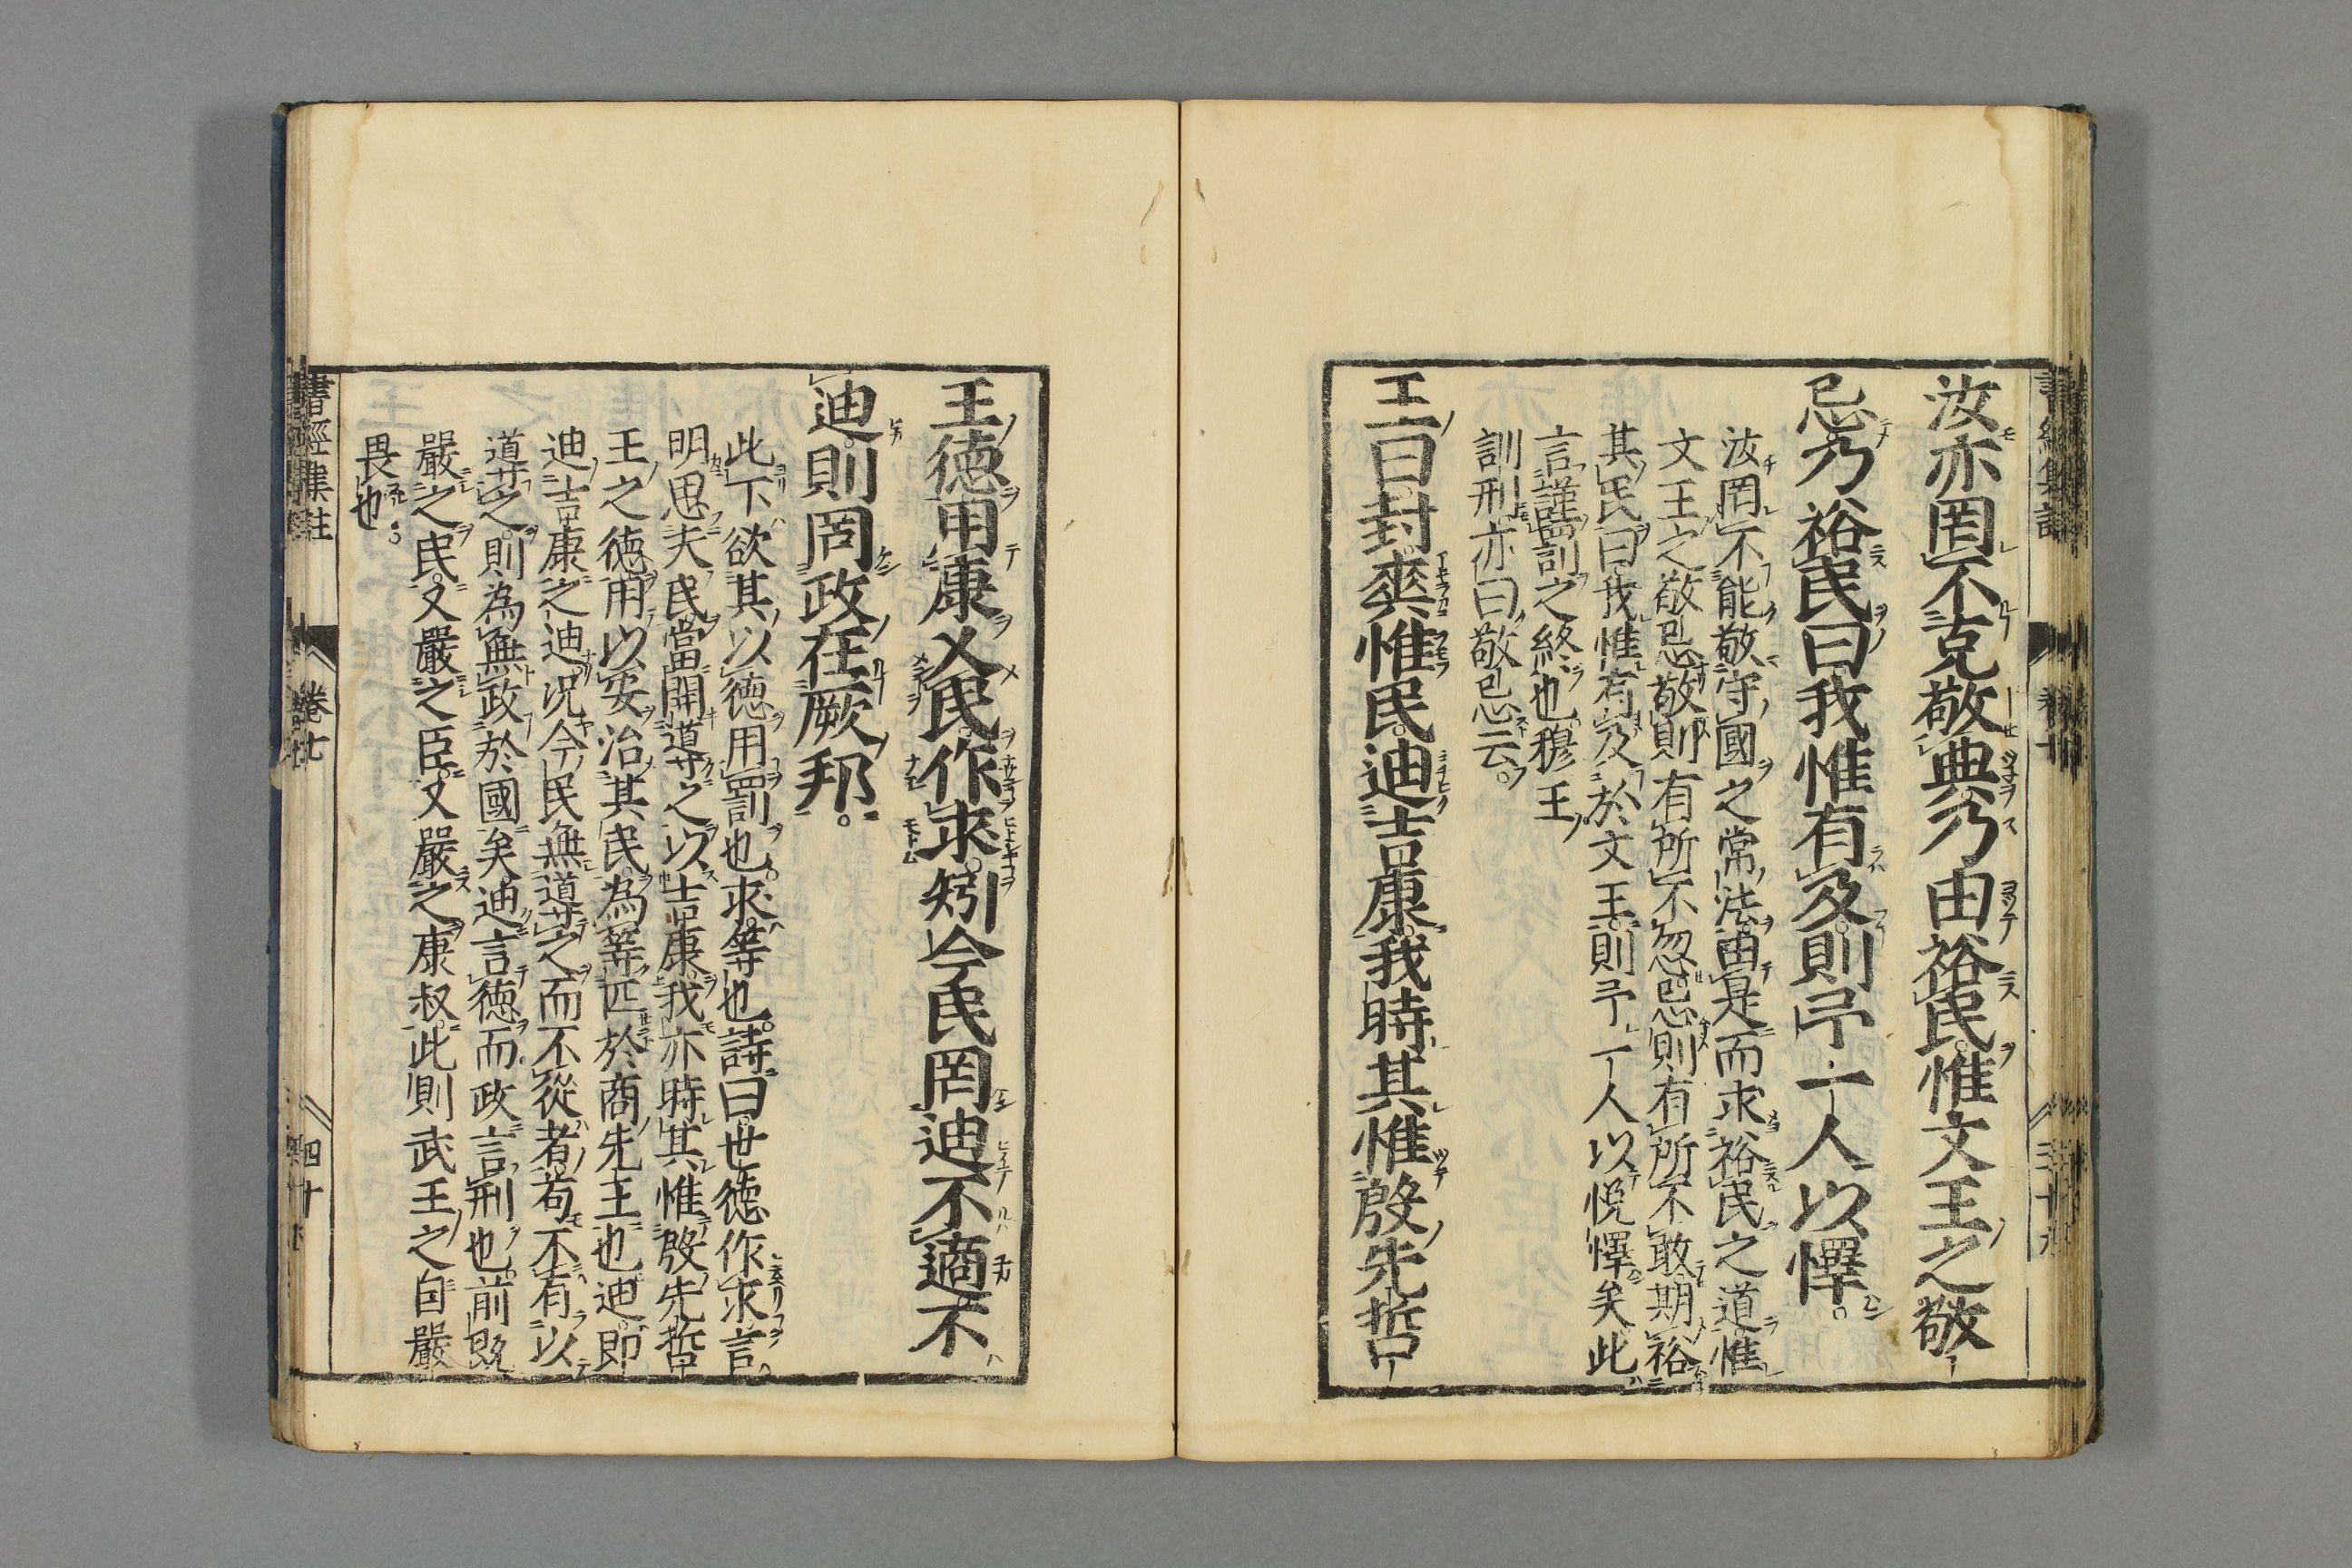 汝亦罔不克敬典乃由裕民惟文王之敬
忌乃裕民曰我惟有及則予一人以懌
汝罔不能敬守國之常法由是而求裕民之道惟
文王之敬忌敬則有所不忽忌則有所不敢期裕
其民曰我惟有及於文王則予一人以悅懌矣此
言謹罰之終也穆王
訓刑亦曰敬忌云
王曰封爽惟民迪吉康我時其惟殷先哲
王德用康乂民作求矧今民罔迪不適不
迪則罔政在厥邦
此下欲其以德用罰也求等也詩曰世德作求言
明思夫民當開導之以吉康我亦時其惟殷先哲
王之德用以安治其民為等匹於商先王也迪即
迪吉康之迪況今民無導之而不從者苟不有以
導之則為無政於國矣迪言德而政言刑也前既
嚴之民又嚴之臣又嚴之康叔此則武王之自嚴
畏也
書經集註 卷七 四十